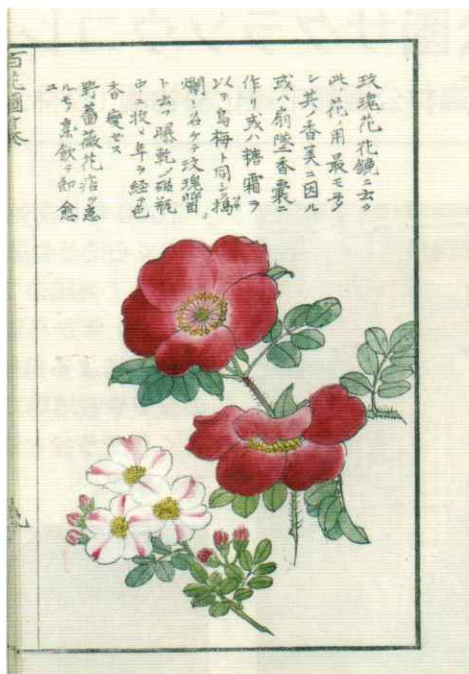 玫瑰花花鏡ニ云ク
此ノ花用最モ
シ其ノ香美ニ因ル
或ハ扇墜香嚢ニ
作リ或ハ糖霜ヲ
以テ烏梅ト同シク搗
爛シ名ケテ玫瑰醤
ト云フ曝乾シ磁瓶
中ニ收メ年ヲ經色
香變セス
野薔薇花瘧ヲ患
ルモノ煮飲テ即愈
ユ
百花圖